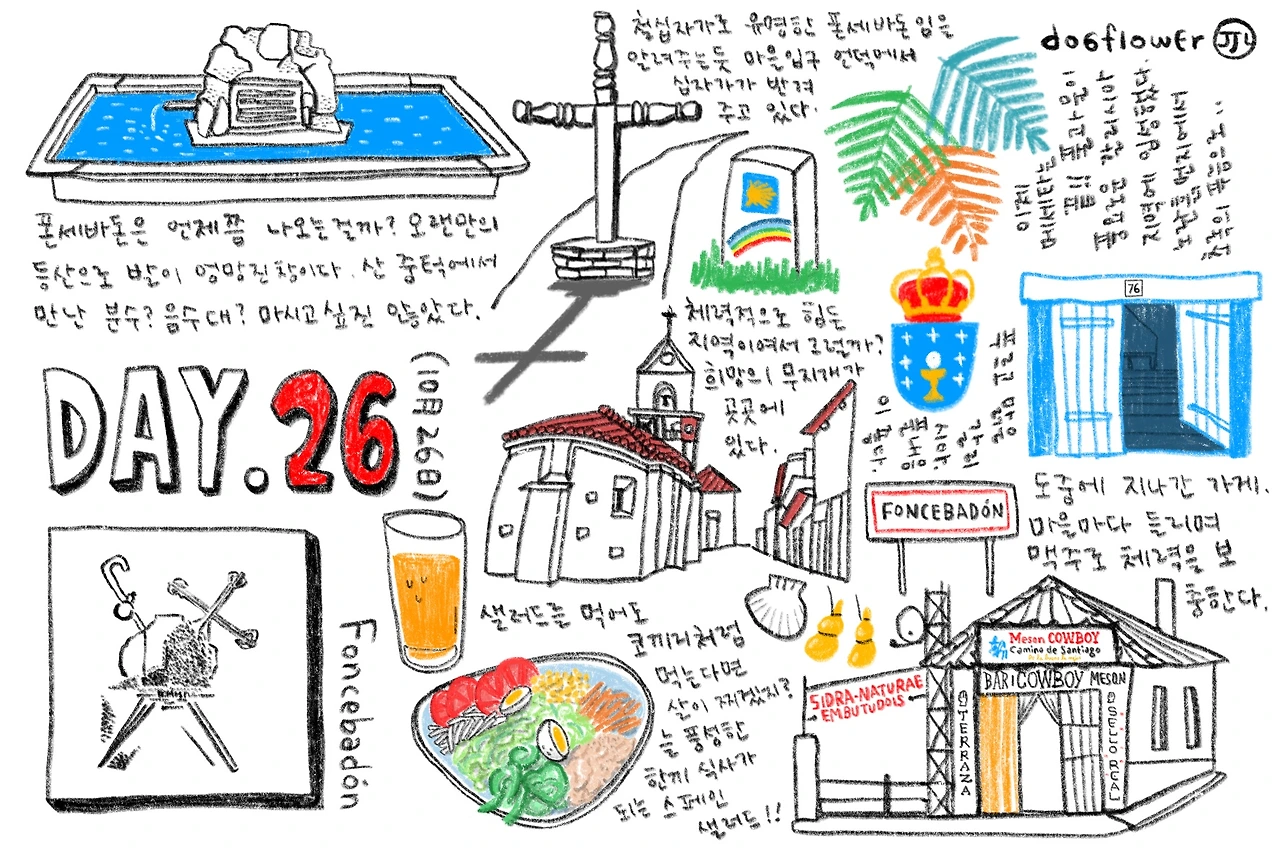 철십자가로 유명한 폰세바돈임을
알려주는듯 마을입구 언덕에서
십자가가 반겨
주고 있다.
dogflower
이제
메세타는
끝!! 풀과 문이
풍요로운 갈리시아
지역에 입성했다.
노란흙 먼지에서
초록의 푸름으로..
폰세바돈은 언제쯤 나오는걸까? 오랜만의
등산으로 발이 엉망진창이다. 산 중턱에서
만난 분수? 음수대? 마시고싶진 않았다.
DAY.26
(10月26日)
체력적으로 힘든
지역이여서 그럴까?
희망의 무지개가
곳곳에
있다.
76
도중에 지나간 가게.
마을마다 들리며
맥주로 체력을 보
충한다.
FONCEBADÓN
Foncebadón
샐러드를 먹어도
코끼리처럼
먹는다면
살이 찌겠지?
늘 풍성한
한끼 식사가
되는 스페인
샐러드!!
Meson COWBOY
Camino de Santiago
BAR COWBOY MESON
SIDRA-NATURAE
EMBUTUDOIS
TERRAZA
SELLO REAL